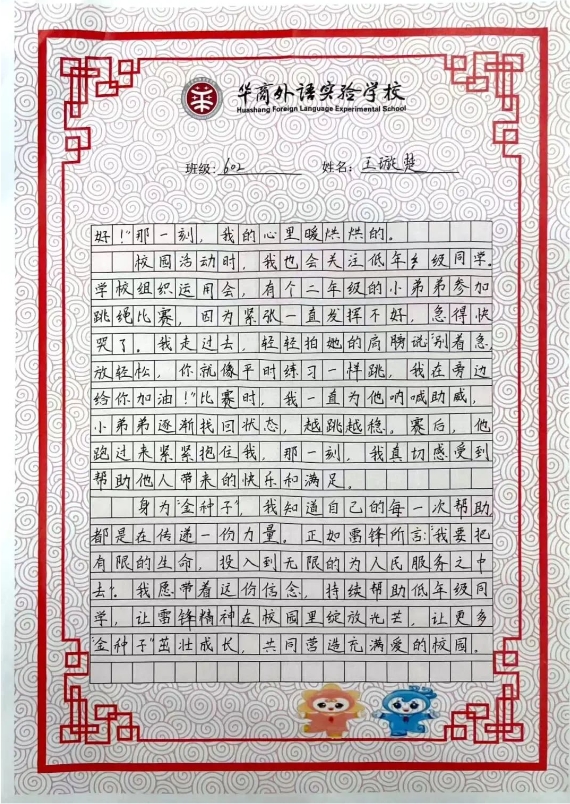 华商外语实验学校
Huashang Foreign Language Experimental School
班级: 602 姓名: 王璇楚
好!"那一刻，我的心里暖烘烘的。
校园活动时，我也会关注低年乡级同学。
学校组织运用会，有个二年级的小弟弟参加
跳绳比赛，因为紧张一直发挥不好，急得快
哭了。我走过去，轻轻拍她的肩膀说:"别着急，
放轻松，你就像平时练习一样跳，我在旁边
给你加油!"比赛时，我一直为他呐喊助威，
小弟弟逐渐找回状态，越跳越稳。赛后，他
跑过来紧紧抱住我，那一刻，我真切感受到
帮助他人带来的快乐和满足。
身为"金种子"，我知道自己的每一次帮助，
都是在传递一份力量。正如雷锋所言:"我要把
有限的生命，投入到无限的为人民服务之中
去"。我愿带着这份信念，持续帮助低年级同
学，让雷锋精神在校园里绽放光芒，让更多
"金种子"茁壮成长，共同营造充满爱的校园。